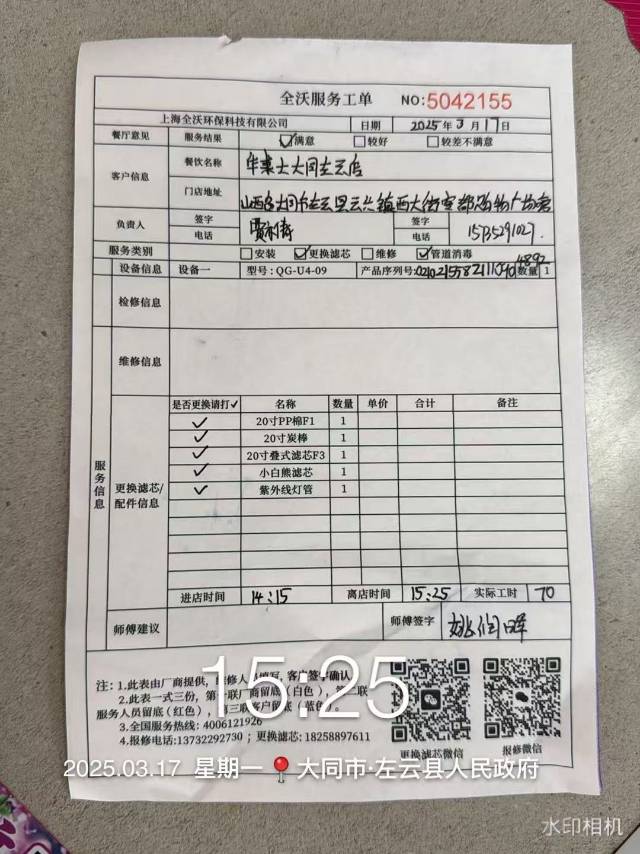 全沃服务工单 NO:5042155
上海全沃环保科技有限公司 日期 2025年3月17日
餐厅意见 服务结果 ☑满意 ☐较好 ☐较差不满意
客户信息 餐饮名称 华莱士大同左云店
门店地址 山西省大同市左云县云兴镇西大街
负责人 签字 签字
电话 电话
服务类别 ☐安装 ☑更换滤芯 ☐维修 ☑管道消毒
设备信息 设备一 型号:QG-U4-09 产品序列号: 数量 1
检修信息
维修信息
服务信息
更换滤芯/配件信息
是否更换请打✓ 名称 数量 单价 合计 备注
✓ 20寸PP棉F1 1
✓ 20寸炭棒 1
✓ 20寸叠式滤芯F3 1
✓ 小白熊滤芯 1
✓ 紫外线灯管 1
进店时间 14:15 离店时间 15:25 实际工时 70
师傅建议 师傅签字 姚润晖
注:1.此表由厂商提供,维修人员填写,客户签字确认
2.此表一式三份,第一联厂商留底(白色),第二联
服务人员留底(红色),第三联客户留底(蓝色)。
3.全国服务热线:4006121926
4.报修电话:13732292730;更换滤芯:18258897611
更换滤芯微信 报修微信
15:25
2025.03.17 星期一 大同市·左云县人民政府
水印相机